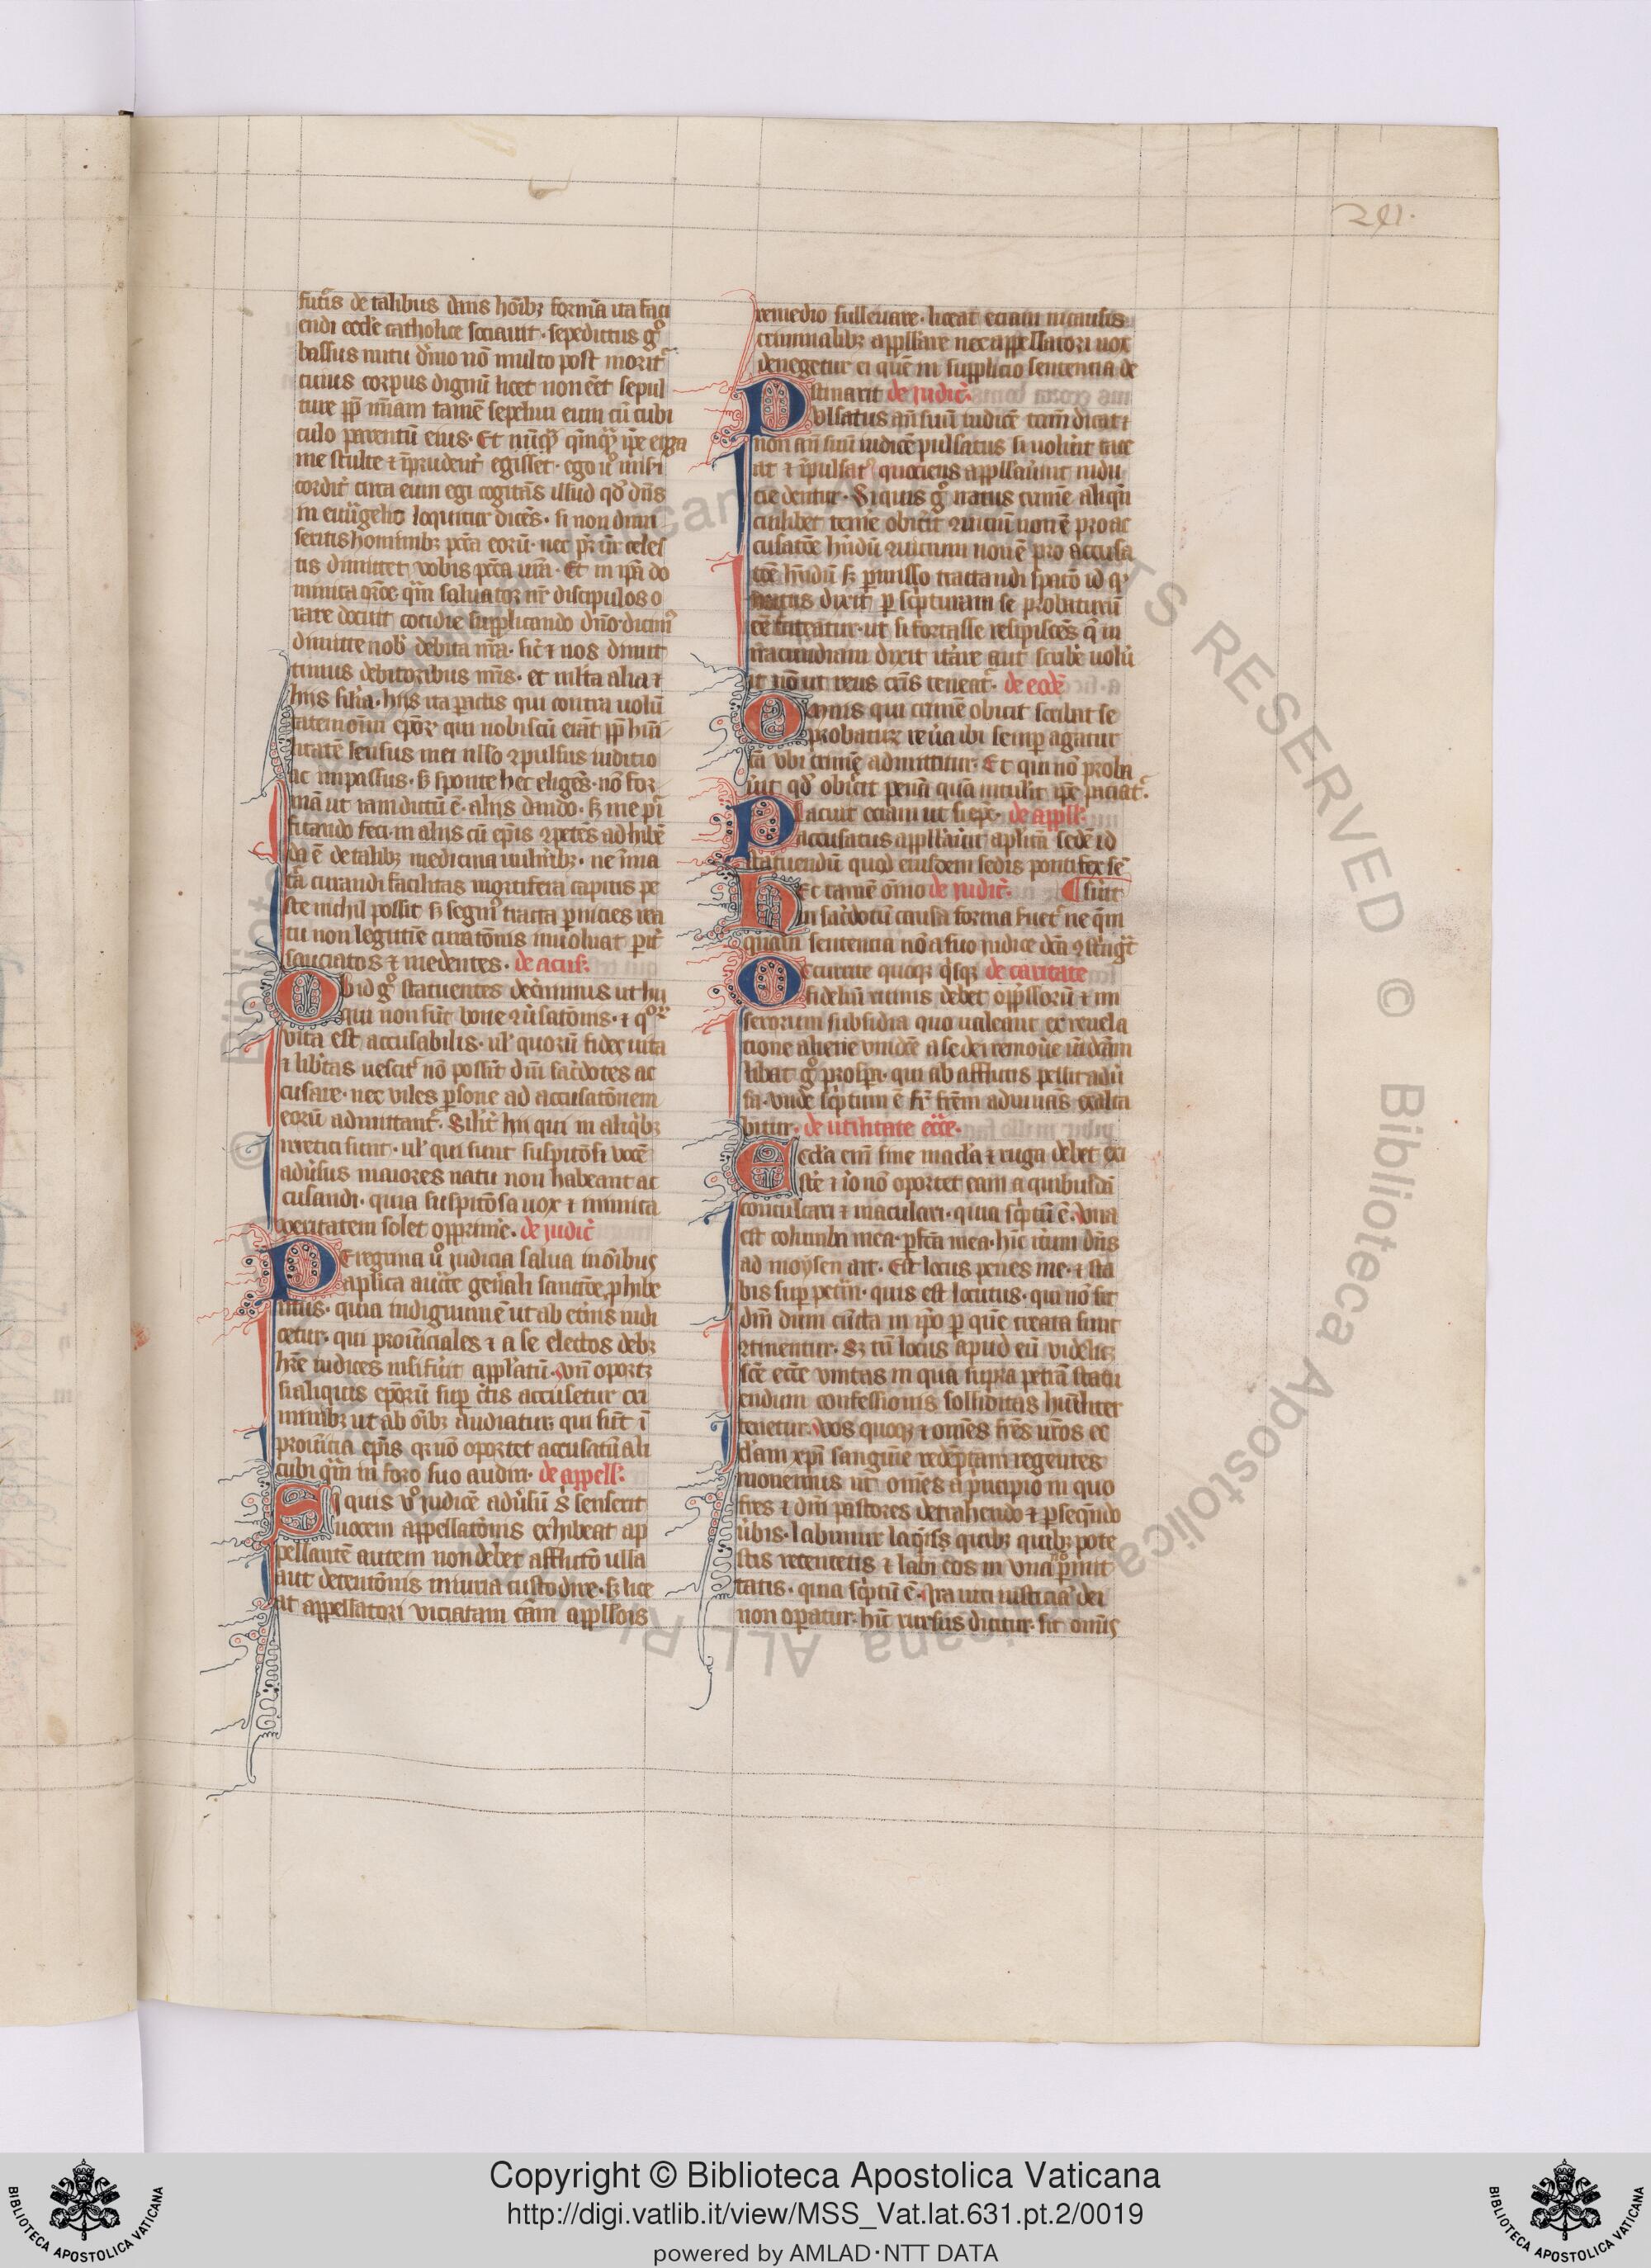 futur̄s de talibus dans hoı̄bꝫ formā ita faci
endi eccl̓e catholice sociauit · sepedictus gͦ
bassus nutu dīno nō multo post moritᷣ
cuius corpus dignū licet non eēt sepul
ture ꝓp̄ mīam tamē sepeliui eum cū cubi
culo parentū eius · Et nūq̄ꝫ q̄mqꝫ ip̄e erga
me stulte ⁊ īprudent̓ egisset · ego uͦ mis̓i
cordit̓ circa eum egi cogitās illud qd̓ dn̄s
in euāgelio loquitur dicēs · si non dimi
seritis hominibꝫ pc̄a eorū · nec pr̄ ur̄ celes
tis dimittet vobis pc̄a ur̄a · Et in ip̄a do
minica or̄oē q̄m saluator nr̄ discipulos o
rare docuit cotidie supplicando dn̄o dicimꝰ
dimitte nob̓ debita nr̄a · sic̓ ⁊ nos dimit
timus debitoribus nr̄is · et multa alia ⁊
hiis sil̓ia · hiis ita ꝑactis qui contra uolū
tatem om̄iū ep̄oꝝ qui nobiscū erāt ꝓp̄ hūi
litatē sensus mei nllo ꝯpulsus iuditio
ac īnpassus · sꝫ sponte hec eligēs · nō for
mā ut iam dictū ē · aliis dando · sꝫ me puri
ficando feci · in aliis cū ep̄is ꝯpetēs adhibē
da ē de talibꝫ medicina uuln̓ibꝫ · ne īma
tā curandi facilitas mortifera capitis pe
ste nichil possit sꝫ segniꝰ tracta ꝑnicies rea
tu non legittie curatōnis inuoluat ꝑit̓
sauciatos ⁊ medentes · de acus̓ ·
Ob id gͦ statuentes dec̓nimus ut hii
qui non sūt bone ꝯu̓satōnis · ⁊ qͦꝝ
vita est accusabilis · ul̓ quorū fides uita
⁊ lib̓tas nescitᷣ nō possūt dn̄i sac̓dotes ac
cusare · nec viles ꝑsone ad accusatōnem
eorū admittantᷣ · Silit̓ hii qui in aliq̓bꝫ
heretici sunt · ul̓ qui sunt suspitōsi uocē
adu̓sus maiores natu non habeant ac
cusandi · quia suspitōsa uox ⁊ inimica
ueritatem solet oppr̄im̓e · de iudic̓
Peregrina uͦ iudicia salua in oı̄bus
ap̄lica auc̄te gen̓ali sanctōe ꝓhibe
mus · quia indignum ē ut ab ext̓nis iudi
cetur · qui prouīciales ⁊ a se electos debꝫ
hr̄e iudices nisi fu̓it appl̓atū · Un̄ oportꝫ
si aliquis ep̄orū suꝑ c̓tis accusetur cri
minibꝫ ut ab oı̄bꝫ audiatur qui sūt ī
prouīcia ep̄is qꝛ nō oportet accusatū ali
cubi q̄m in foro suo audiri · de appell̓ ·
Si quis vͦ iudicē adu̓sū s̓ senserit
uocem appellatōnis exhibeat ap
pellantē autem non debet afflictō ulla
aut detentōnis iniuria custodire · sꝫ lice
at appellatori viciatam cām appll̓ois
remedio subleuare · liceat etiam in causis
criminalibꝫ appll̓are nec appellatori uox
denegetur ei quē in supplicio sentencia de
stinarit de iudic̓ ·
Pulsatus an̄ suū iudicē cām dicat ⁊
non an̄ suū iudicē pulsatus si uolu̓it tace
at ⁊ īpulsatꝰ quociens appllau̓int indu
cie dentur · Si quis gͦ iratus crimē aliqd̓
cuilibet tem̓e obiec̓it ꝯuiciū non ē pro ac
cusatōe hn̄dū
tōe hn̄dū sꝫ ꝑmisso tractandi spacō id qd̓
iratus dixit ꝑ sc̓pturam se probaturū
eē fateatur · ut si fortasse resipiscēs q̄ in
iracundiam dixit it̓are aut scribe nolu̓
it nō ut reus c̓mīs teneatᷣ · de eod̓
Omnis qui crimē obicit scribat se
probaturꝫ reu̓a ibi semꝑ agatur
cā vbi crimē admittitur · Et qui nō proba
u̓it qd̓ obiecit penā quā intulit ip̄e paciatᷣ ·
Placuit etiam ut si ep̄c · de appll̓ ·
accusatus appllau̓it ap̄licā sedē id
statuendū quod eiusdem sedis pontifex cē
Hec tamē oīno de iudic̓ · ¶ su̓it
in sac̓dotū causa forma s̓uetᷣ ne q̄m
quam sentencia nō a suo iudice dc̄a ꝯstr̄ingat
Occurrere quoqꝫ q̓sqꝫ de caritate
fidelīu ruinis debet opp̄ssorū ⁊ mi
serorum subsidia quo ualeant ex reuela
tione aliene vindc̄e a se dei remou̓e uīdc̄am
libat gͦ prosꝑa · qui ab afflictis pellit adu̓
sa · vnde sc̓ptum ē fr̄ fr̄em adiuuās exalta
bitur · de utilitate ecc̓e ·
Eccl̓ia eni̅ sine macl̓a ⁊ ruga debet exi
ste̓ ⁊ iͦo nō oportet eam a quibusdā
conculcari ⁊ maculari · quia sc̓ptū ē · Una
est columba mea · ꝑfc̄a mea · hīc it̓um dn̄s
ad moysen ait · Est locus penes me · ⁊ sta
bis suꝑ petrā · quis est locutus · qui nō sit
dn̄i dum cūcta in ip̄o ꝑ quē creata sunt
ꝯtinentur · Sꝫ tn̄ locus apud eū videlicꝫ
sc̄e ecc̄e vnitas in qua supra petrā statu
endum confessionis solliditas hūilit̓er
tenetur · Vos quoqꝫ ⁊ omēs fr̄es ur̄os ec
cl̓iam xp̄i sanguīe redēptam regentes
monemus ut omēs a p̓ncipio in quo
fr̄es ⁊ dn̄i pastores detrahendo ⁊ ꝑseq̄ndo
quibꝫ pote
stis retentetis ⁊ labi eos in vna nō ꝑmit
tatis · quia sc̓ptū ē · Ira uiri iusticiā dei
non oꝑatur · hīc rursus dicitur · sit omīs